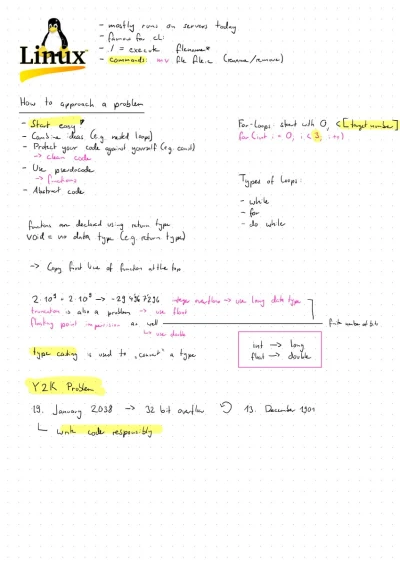 Linux
- mostly runs on servers today
- famous for cli
- ./ = execute filename*
- commands: mv file file.c (rename/remove)
How to approach a problem
- Start easy!
- Combine ideas (e.g. nested loops)
- Protect your code against yourself (e.g. const)
→ clean code
- Use pseudocode
→ functions
- Abstract code
For-Loops: start with 0, < [target number]
for (int i = 0, i < 3, i++)
Types of Loops:
- while
- for
- do while
functions are declared using return type
void = no data type (e.g. return type)
→ Copy first line of function at the top
2·10⁹ + 2·10⁹ → -294967296 integer overflow → use long data type
truncation is also a problem → use float
floating point imprecision as well
↳ use double
finite number of bits
int → long
float → double
type casting is used to "convert" a type
Y2K Problem
19. January 2038 → 32 bit overflow 13. December 1901
write code responsibly